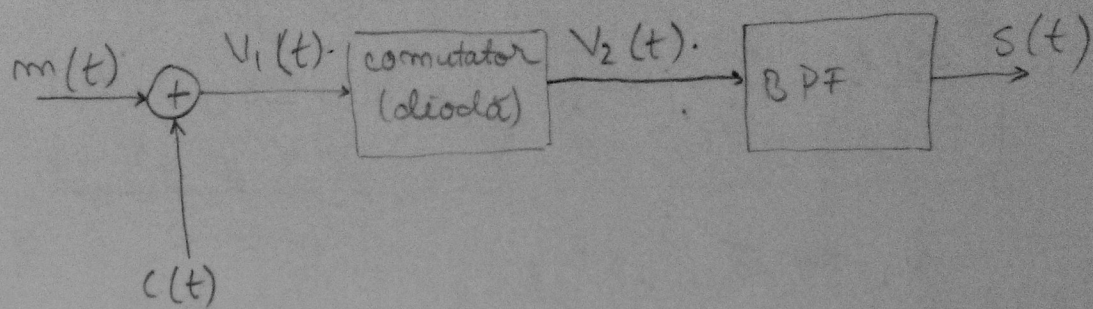 m(t)
+
V₁(t).
comutator
(diodă)
V₂(t).
BPF
s(t)
c(t)